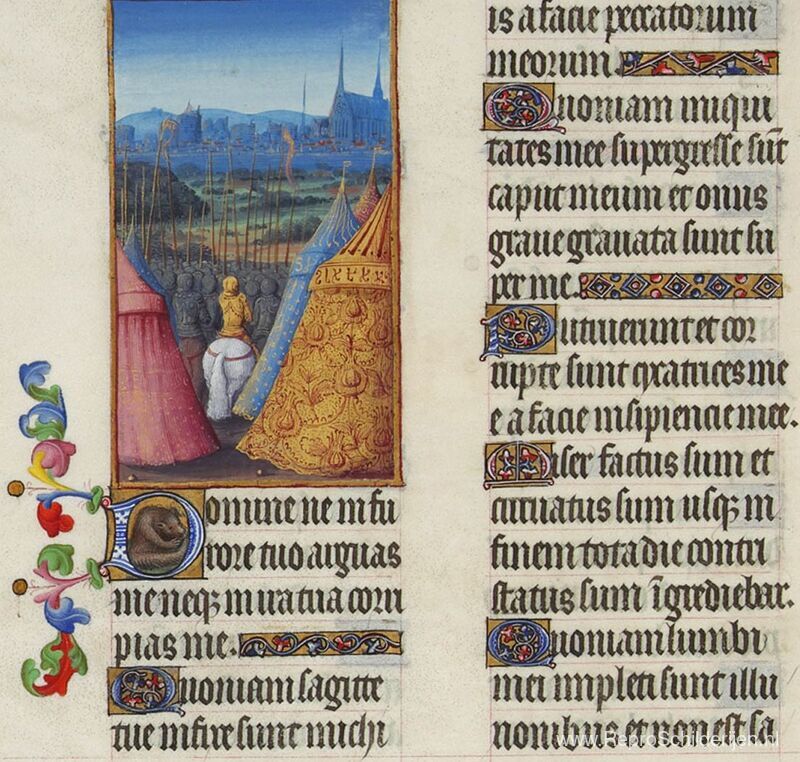 Domine ne in fu
rore tuo arguas
me neqꝫ in ira tua corri
pias me.
Quoniam sagitte
tue infixe sunt michi
is a facie peccatorum
meorum.
Quoniam iniqui
tates mee supergresse sūt
caput meum et onus
graue grauata sunt su
per me.
Putruerunt et cor
rupte sunt cicatrices me
e a facie insipiencie mee.
Miser factus sum et
curuatus sum usqꝫ in
finem tota die contri
status sum īgrediebar.
Quoniam lumbi
mei impleti sunt illu
sionibus et non est sa
www.ReproSchilderijen.nl